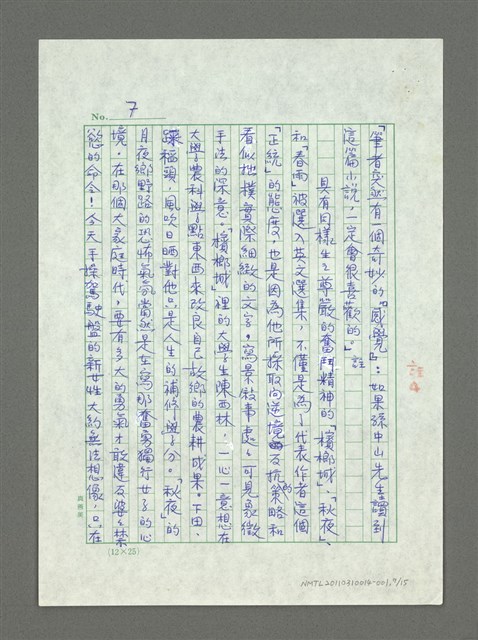 No. 7
「筆者突然有一個奇妙的『感覺』：如果孫中山先生讀到
這篇小說，一定會很喜歡的。」註
註4
具有同樣生之尊嚴的奮鬥精神的「檳榔城」、「秋夜」、
和「春雨」被選入英文選集，不僅是為了代表作者這個
「正統」的態度，也是因為他所採取向逆境的及抗策略和
看似拙樸實際細緻的文字，寫景敘事處處可見象徵
手法的深意。「檳榔城」裡的大學生陳西林，一心一意想在
大學農科學點東西來改良自己故鄉的農耕成果。下田、
踩稻頭，風吹日晒對他只是人生的補修學分。「秋夜」的
月夜鄉野路的恐怖氣氛當然是在寫那奮勇獨行女子的心
境。在那個大家庭時代，要有多大的勇氣才敢違反婆婆禁
慾的命令！今天手操駕駛盤的新女性大約無法想像，只在
(12×25)
NMTL20110310014-001, 7/15